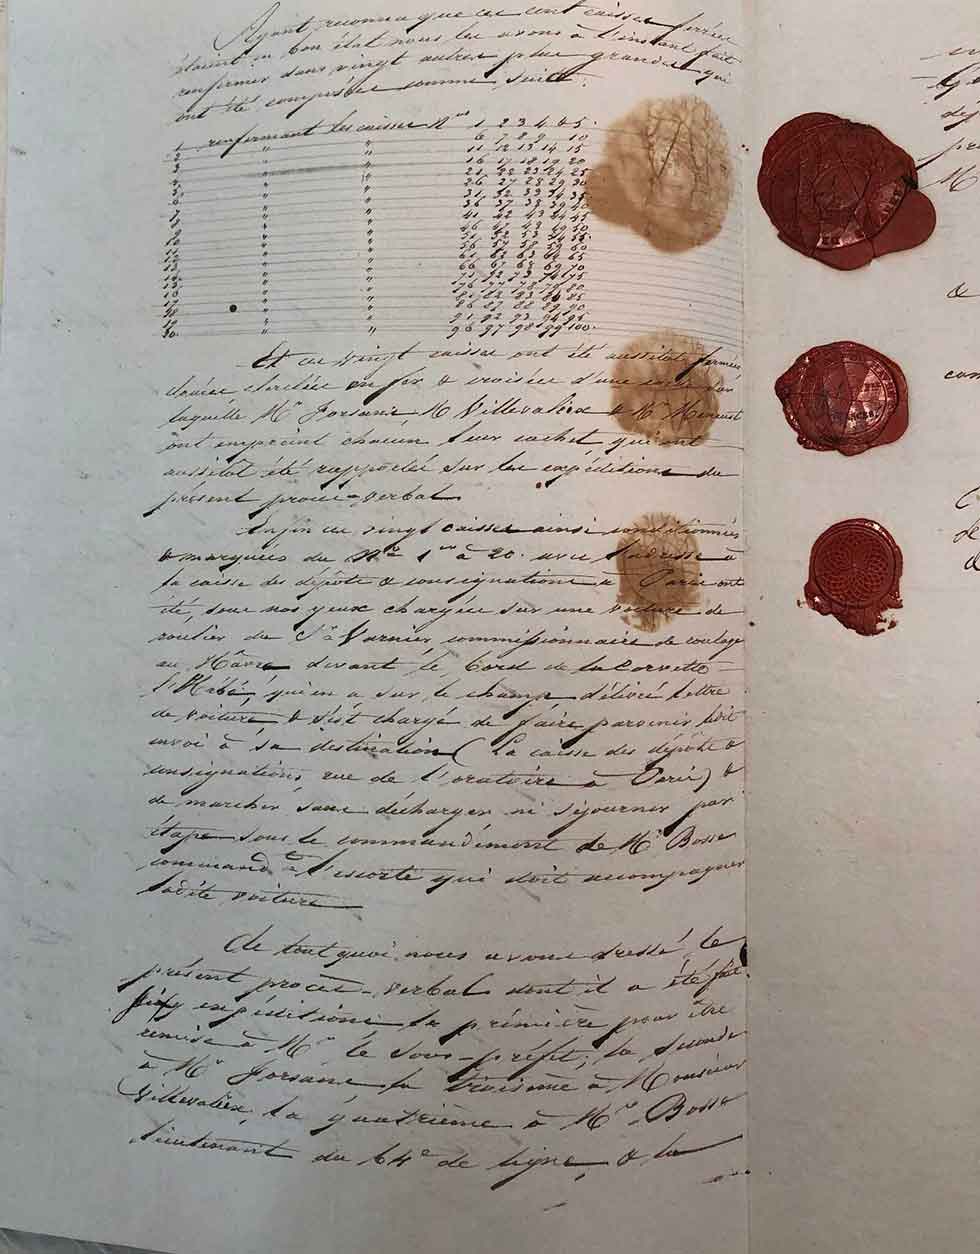 Ayant reconnu que ces cent caisses ferrées
étaient en bon état nous les avons à l'instant fait
renfermer dans vingt autres plus grandes qui
ont été composées comme suit:
1 renfermant les caisses Nos 1 2 3 4 & 5.
2 " " 6 7 8 9 10
3 " " 11 12 13 14 15
4 " " 16 17 18 19 20
5 " " 21 22 23 24 25
6 " " 26 27 28 29 30
7 " " 31 32 33 34 35
8 " " 36 37 38 39 40
9 " " 41 42 43 44 45
10 " " 46 47 48 49 50
11 " " 51 52 53 54 55
12 " " 56 57 58 59 60
13 " " 61 62 63 64 65
14 " " 66 67 68 69 70
15 " " 71 72 73 74 75
16 " " 76 77 78 79 80
17 " " 81 82 83 84 85
18 " " 86 87 88 89 90
19 " " 91 92 93 94 95
20. " " 96 97 98 99 100.
Et ces vingt caisses ont été aussitôt fermées
clouées cerclées en fer & croisées d'une corde sur
laquelle Mr Forsans M Villevaleix & Mr
ont empreint chacun leur cachet qui ont
aussitôt été rappelés sur les expéditions du
présent procès-verbal
Enfin ces vingt caisses ainsi conditionnées
& marquées du No 1er à 20. avec l'adresse à
la caisse des dépôts & consignations à Paris ont
été, sous nos yeux chargées sur une voiture de
roulier du Sr Varnier commissionnaire de roulage
au Hâvre devant le bord de la Corvette
l'Hébé, qui en a sur le champ délivré lettre
de voiture & s'est chargé de faire parvenir ledit
envoi à sa destination (La caisse des dépôts &
consignations, rue de l'oratoire à Paris) &
de marcher sans décharger ni séjourner par
étape sous le commandement de Mr Bosse
commandt l'escorte qui doit accompagner
ladite voiture
De tout quoi nous avons dressé le
présent procès-verbal dont il a été fait
expéditions la première pour être
remise à Mr le Sous-préfet; la seconde
à Mr Forsans la troisième à Monsieur
Villevaleix, la quatrième à Mr Bosse
lieutenant du 64e de ligne, & la